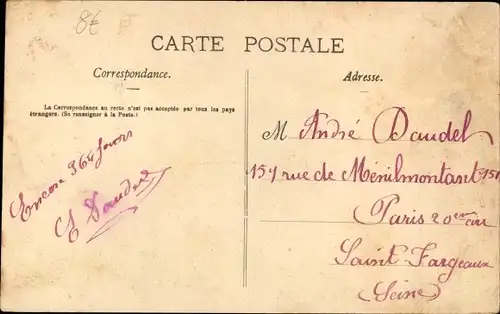 8€
CARTE POSTALE
Correspondance.
Adresse.
La Correspondance au recto n'est pas acceptée par tous les pays
étrangers. (Se renseigner à la Poste.)
Encore 364 jours
E Daudel
M André Daudel
151 rue de Ménilmontant 151
Paris 20
Saint Fargeaux
Seine